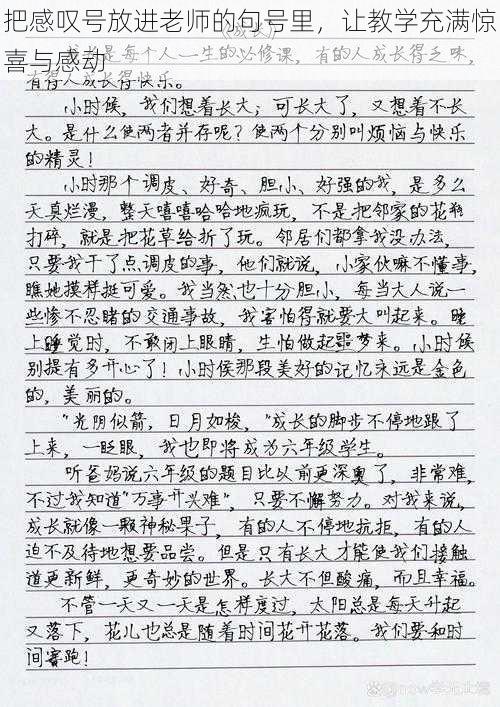 把感叹号放进老师的句号里，让教学充满惊
喜与感动
《成长》
成长是每个人一生的必修课，有的人成长得乏味，
有得人成长得快乐。
小时候，我们想着长大；可长大了，又想着不长
大。是什么使两者并存呢？使两个分别叫烦恼与快乐
的精灵！
小时那个调皮、好奇、胆小、好强的我，是多么
天真烂漫，整天嘻嘻哈哈地疯玩，不是把邻家的花瓶
打碎，就是把花草给折了玩。邻居们都拿我没办法，
只要我干了点调皮的事，他们就说，小家伙嘛不懂事，
瞧她摸样挺可爱。我当然也十分胆小，每当大人说一
些惨不忍睹的交通事故，我害怕得就要大叫起来。晚
上睡觉时，不敢闭上眼睛，生怕做起噩梦来。小时候
别提有多开心了！小时侯那段美好的记忆永远是金色
的，美丽的。
"光阴似箭，日月如梭，"成长的脚步不停地跟了
上来，一眨眼，我也即将成为六年级学生。
听爸妈说六年级的题目比以前更深奥了，非常难，
不过我知道"万事开头难"，只要不懈努力。对我来说，
成长就像一颗神秘果子，有的人不停地抗拒，有的人
迫不及待地想要品尝。但是只有长大才能使我们接触
道更新鲜，更奇妙的世界。长大不但酸痛，而且幸福。
不管一天又一天是怎样度过，太阳总是每天升起
又落下，花儿也总是随着时间花开花落。我们要和时
间赛跑！